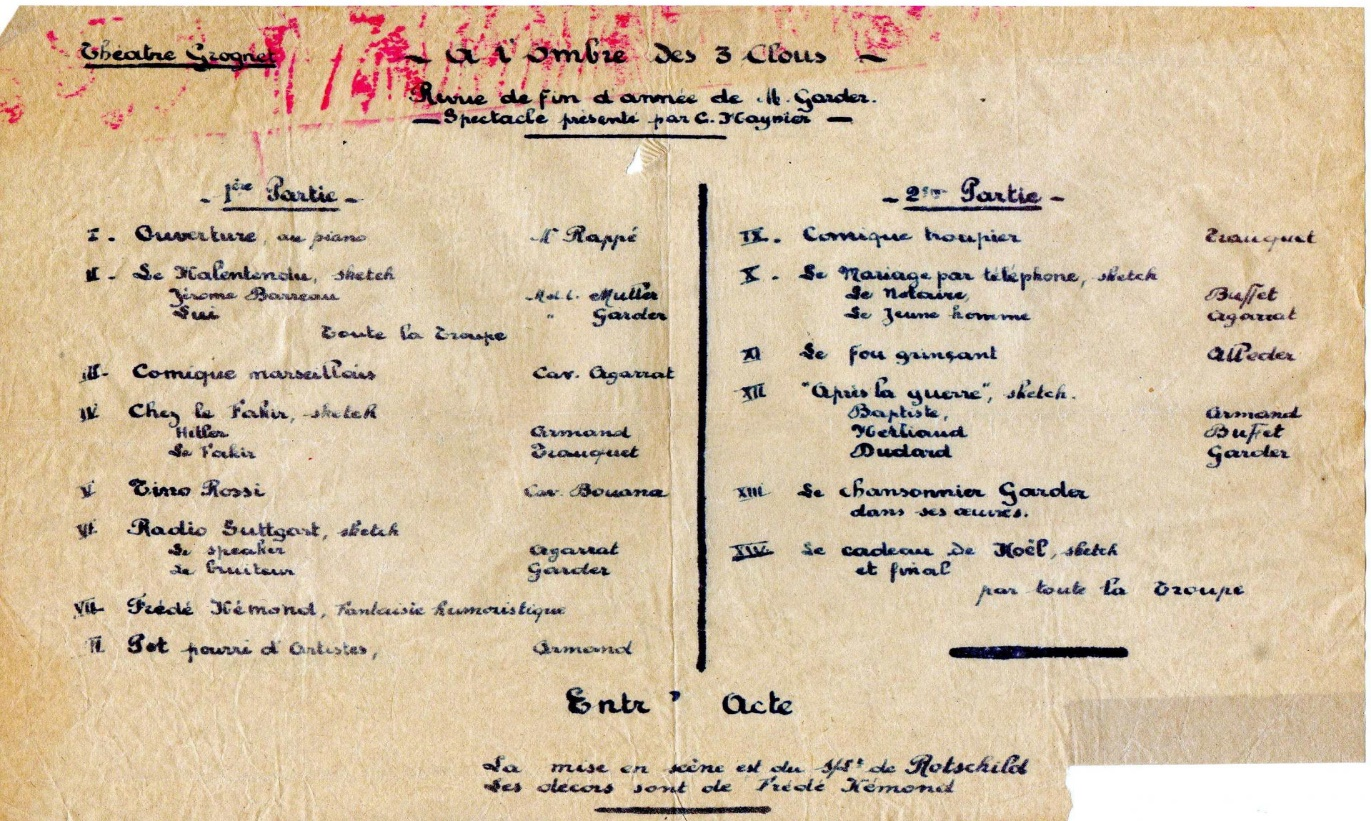 Théatre Grognet
- A l'Ombre des 3 Clous -
Revue de fin d'année de M. Garder.
- Spectacle présenté par G. Maynier -
- 1ère Partie -
I - Ouverture, au piano Mr Rappé
II - Le Malentendu, sketch
Jérome Barreau Mal. L. Muller
Lui " Garder
Toute la Troupe
III - Comique marseillais Cav. Agarrat
IV Chez le Fakir, sketch
Hitler Armand
Le Fakir Trauquet
V Tino Rossi Cav. Bouana
VI Radio Suttgart, sketch
Le speaker Agarrat
Le bruiteur Garder
VII - Frédé Kémond, Fantaisie humoristique
Pot pourri d'Artistes, Armand
- 2ème Partie -
IX - Comique troupier Trauquet
X - Le Mariage par téléphone, sketch
Le Notaire, Buffet
Le Jeune homme Agarrat
XI Le fou grinçant Alleder
XII "Après la guerre", sketch.
Baptiste, Armand
Merliaud Buffet
Dudard Garder
XIII Le chansonnier Garder
dans ses œuvres.
XIV - Le cadeau de Noël, sketch
et final
par toute la Troupe
Entr' Acte
La mise en scène est du de Rotschild
Les décors sont de Frédé Kémond